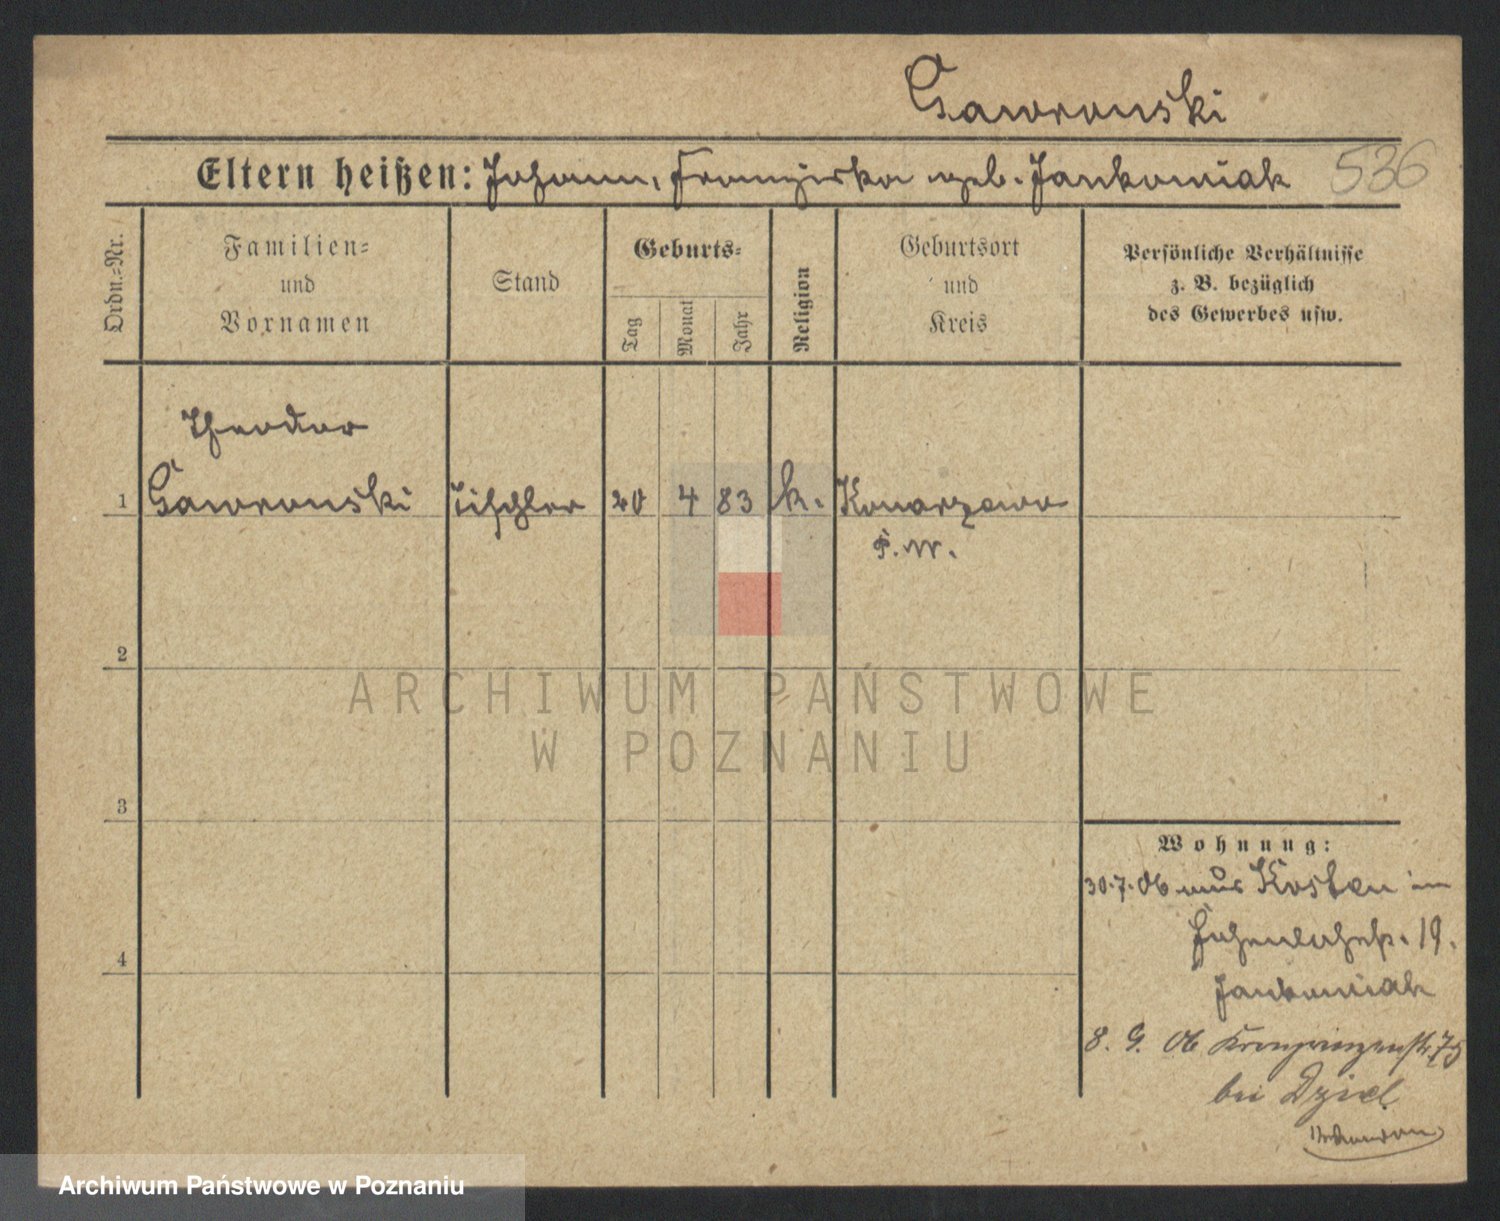 Gawronski
Eltern heißen: Johann, Franziska geb. Jankowiak 536
Ordn.=Nr.
Familien=
und
Vornamen
Stand
Geburts=
Tag
Monat
Jahr
Religion
Geburtsort
und
Kreis
Persönliche Verhältnisse
z. B. bezüglich
des Gewerbes usw.
Theodor
1 Gawronski Tischler 20 4 83 k. Konarzewo
P. W.
2
3
4
Wohnung:
30.7.06 aus Kosten in
19.
Jankowiak
8. 9. 06 Kronprinzenstr. 75
bei Dziel
ARCHIWUM PAŃSTWOWE
W POZNANIU
Archiwum Państwowe w Poznaniu